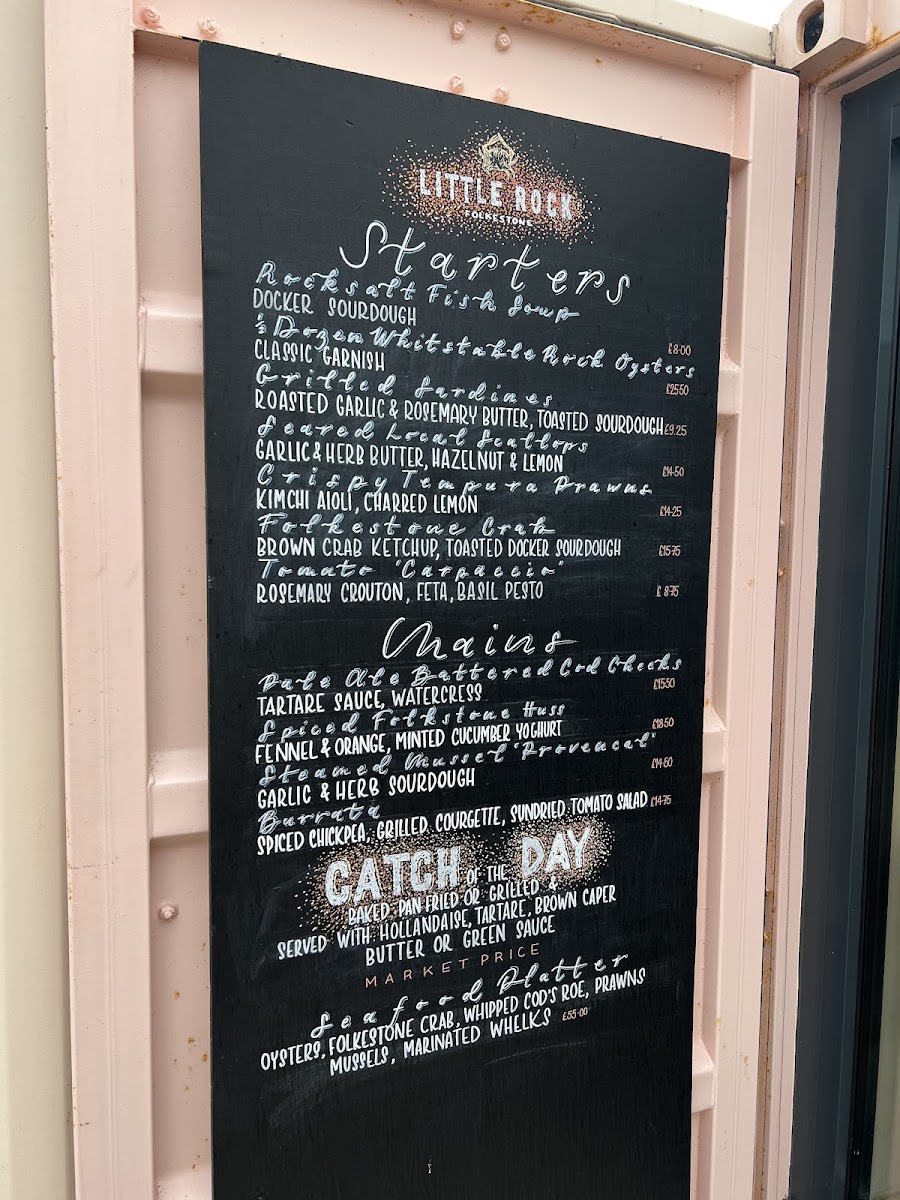 LITTLE ROCK
FOLKESTONE
Starters
Rocksalt Fish Soup
DOCKER SOURDOUGH £8.00
½ Dozen Whitstable Rock Oysters
CLASSIC GARNISH £25.50
Grilled Sardines
ROASTED GARLIC & ROSEMARY BUTTER, TOASTED SOURDOUGH £9.25
Seared Local Scallops
GARLIC & HERB BUTTER, HAZELNUT & LEMON £14.50
Crispy Tempura Prawns
KIMCHI AIOLI, CHARRED LEMON £14.25
Folkestone Crab
BROWN CRAB KETCHUP, TOASTED DOCKER SOURDOUGH £15.75
Tomato "Carpaccio"
ROSEMARY CROUTON, FETA, BASIL PESTO £8.75
Mains
Pale Ale Battered Cod Cheeks
TARTARE SAUCE, WATERCRESS £15.50
Spiced Folkstone Huss
FENNEL & ORANGE, MINTED CUCUMBER YOGHURT £18.50
Steamed Mussel "Provencal"
GARLIC & HERB SOURDOUGH £14.50
Burrata
SPICED CHICKPEA, GRILLED COURGETTE, SUNDRIED TOMATO SALAD £14.75
CATCH OF THE DAY
BAKED, PAN FRIED OR GRILLED &
SERVED WITH HOLLANDAISE, TARTARE, BROWN CAPER
BUTTER OR GREEN SAUCE
MARKET PRICE
Seafood Platter
OYSTERS, FOLKESTONE CRAB, WHIPPED COD'S ROE, PRAWNS
MUSSELS, MARINATED WHELKS £55.00